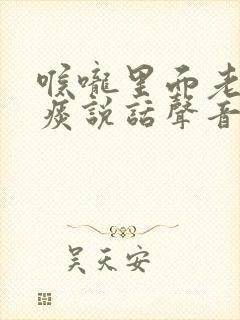 喉嚨里面老
痰說話聲音
吴天安